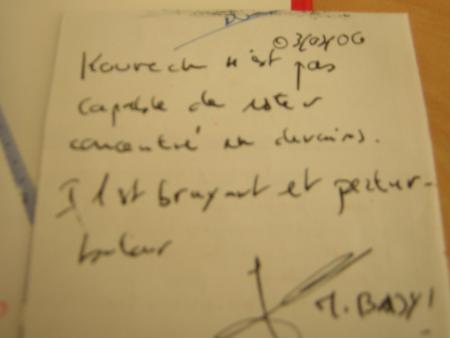 03/03/06
Kourech n'est pas
capable de rester
concentré en devoirs.
Il est bruyant et pertur-
bateur
M. BADY!